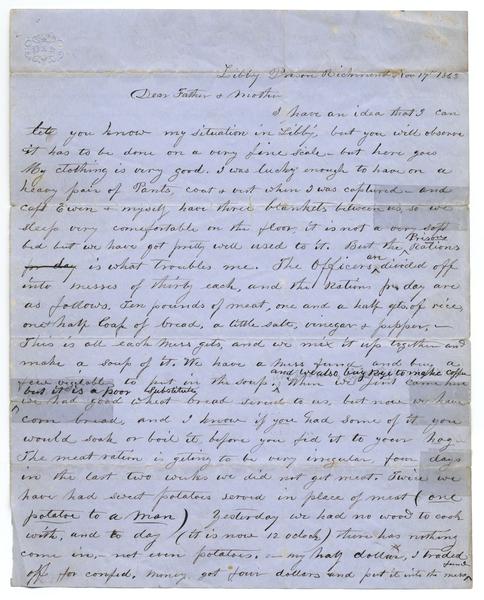 Libby Prison Richmond Nov 17th 1863
Dear Father & Mother
I have an idea that I can
let you know my situation in Libby, but you will observe
it has to be done on a very fine scale - but here goes
My clothing is very good. I was lucky enough to have on a
heavy pair of Pants, coat & vest when I was captured - and
Capt Ewen & myself have three blankets between us, so we
sleep very comfortable on the floor, it is not a very soft
bed but we have got pretty well used to it. But the Prison Rations
for day is what troubles me. The Officers are divided off
into messes of thirty each, and the Rations pr day are
as follows, Ten pounds of meat, one and a half qts. of rice,
one & half loaf of bread, a little salt, vinegar & pepper, -
This is all each Mess gets, and we mix it up together and
make a soup of it. We have a Mess fund and buy a
few vegitables to put in the soup, and we also buy rye to make coffee
but it is a poor substitute. When we first came here
we had good wheat bread served to us, but now we have
corn bread, and I know if you had some of it you
would soak or boil it, before you fed it to your hogs.
The meat ration is geting to be very irregular, four days
in the last two weeks we did not get meat. Twice we
have had sweet potatoes served in place of meat (one
potatoe to a man) Yesterday we had no wood to cook
with, and to day (it is now 12 oclock) there has nothing
come in, - not even potatoes. - my half dollar, I traded
off for confed. money, got four dollars and put it into the mess fund